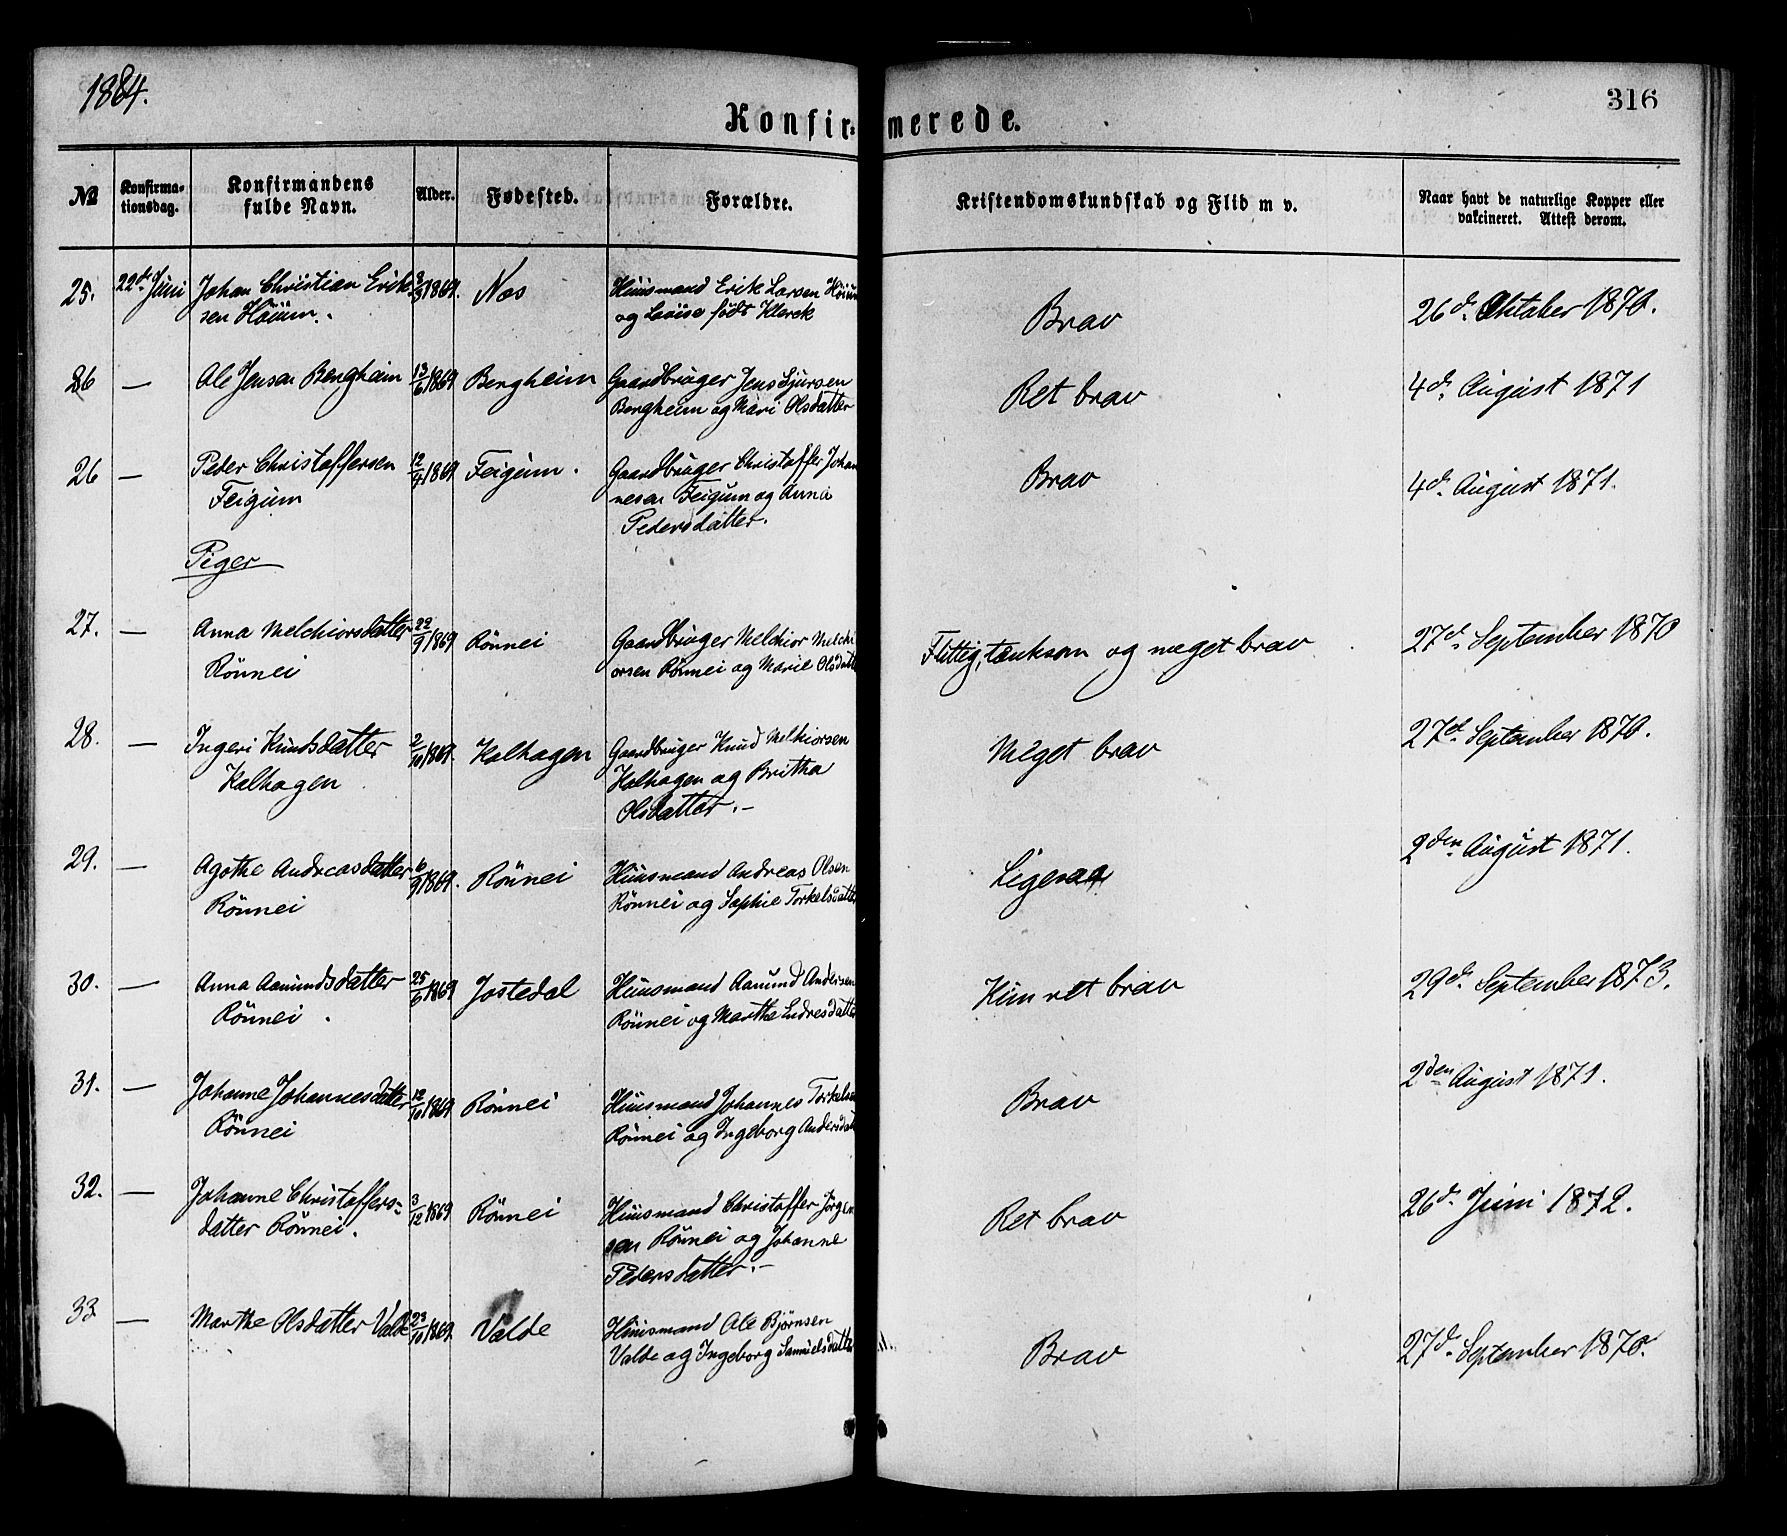 1884.
316
Konfirmerede.
№ Konfirma-tionsdag. Konfirmandens fulde Navn. Alder. Fødested. Forældre. Kristendomskundskab og Flid m v. Naar havt de naturlige Kopper eller vakcineret. Attest derom.
25. 22de Juni Johan Christian Erik- 1869. Nes Huusmand Erik Larsen Høium Brav 26d. Oktober 1870.
sen Høium. og Lovise født Klerck
26 — Ole Jensen Bergheim 13/6 1869 Bergheim Gaardbruger Jens Sjursen Ret brav 4d. August 1871
Bergheim og Mari Olsdatter
26 — Peder Christoffersen 12/7 1869 Feigum. Gaardbruger Christoffer Johan Brav 4d. August 1871.
Feigum nesen Feigum og Anna
Pedersdatter.
Piger
27. — Anna Melchiorsdatter 22/9 1869 Rönnei Gaardbruger Melchior Melchi Flittig, tænksom og meget brav 27d. September 1870
Rönnei orsen Rönnei og Marie Olsdatt
28. — Ingeri Knudsdatter 2/10 1869. Kalhagen Gaardbruger Knud Melkiorsen Meget brav 27d. September 1870.
Kalhagen Kalhagen og Britha
Olsdatter.—
29. — Agathe Andreasdatter 6/9 1869. Rönnei Huusmand Andreas Olsen Ligesaa 2den August 1871.
Rönnei Rönnei og Sophie Torkelsdatter
30. — Anna Aamundsdatter 25/6 1869 Jostedal Huusmand Aamund Andersen Kun ret brav 29d. September 1873.
Rönnei. Rönnei og Marthe Endresdatter
31. — Johanne Johannesdatter 12/10 1869 Rönnei Huusmand Johannes Torkelsen Brav 2den August 1871.
Rönnei Rönnei og Ingeborg Andersdat
32. — Johanne Christoffers- 3/12 1869 Rönnei Huusmand Christoffer Jörgen Ret brav 26d. Juni 1872.
datter Rönnei. sen Rönnei og Johanne
Pedersdatter.—
33 — Marthe Olsdatter Valde 23/10 1869. Valde Huusmand Ole Bjørnsen Brav 27d. September 1870.
Valde og Ingeborg Samuelsdatter